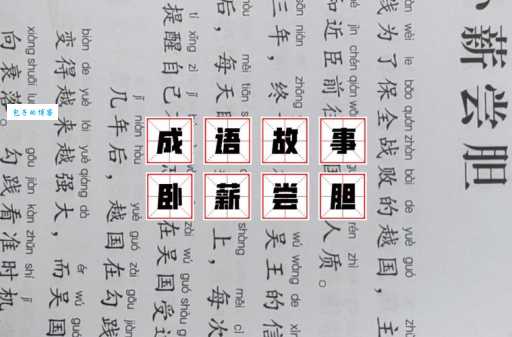 成语故事
卧薪尝胆
包子的博客
薪尝胆
wèi le bǎo quán zhàn bài de yuè guó
践为了保全战败的越国，主
和近臣前往
人质。
sān nián zhōng
三年，终
wú wáng de xìn
吴王的信
hòu měi tiān
后，每天
shàng měi cì
上，每次
tí xǐng zì jǐ
提醒自己
zài wú guó shòu
在吴国受
jǐ nián hòu yuè guó zài gōu jiàn
几年后，越国在勾践
biàn de yuè lái yuè qiáng dà ér wú guó
变得越来越强大，而吴国
xiàng shuāi luò gōu jiàn kàn zhǔn shí jī
向衰落。勾践看准时机